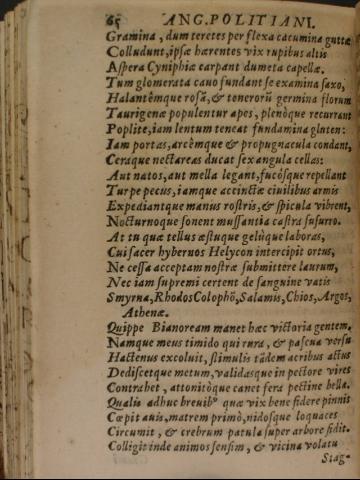 65 ANG. POLITIANI.
Gramina, dum teretes per flexa cacumina guttæ
Colludunt, ipsæ hærentes vix rupibus altis
Aspera Cyniphiæ carpant dumeta capellæ.
Tum glomerata cauo fundant se examina saxo,
Halantêmque rosã, & tenerorũ germina florum
Taurigenæ populentur apes, plenòque recurrant
Poplite, iam lentum teneat fundamina gluten:
Iam portas, arcêmque & propugnacula condant,
Ceraque nectareas ducat sexangula cellas:
Aut natos, aut mella legant, fucósque repellant
Turpe pecus, iamque accinctæ ciuilibus armis
Expediantque manus rostris, & spicula vibrent,
Nocturnoque sonent mussantia castra susurro.
At tu quæ tellus æstuque gelùque laboras,
Cui sacer hybernos Helycon intercipit ortus,
Ne cessa acceptam nostræ submittere laurum,
Nec iam supremi certent de sanguine vatis
Smyrna, Rhodos Colophõ, Salamis, Chios, Argos,
Athenæ.
Quippe Bianoream manet hæc victoria gentem.
Namque meus timido qui rura, & pascua versu
Hactenus excoluit, stimulis tãdem acribus actus
Dediscetque metum, validasque in pectore vires
Contrahet, attonitòque canet fera pectine bella.
Qualis adhuc breuibꝰ quæ vix bene fidere pinnis
Cœpit auis, matrem primò, nidosque loquaces
Circumit, & crebrum patula super arbore sidit.
Colligit inde animos sensim, & vicina volatu
Stag-